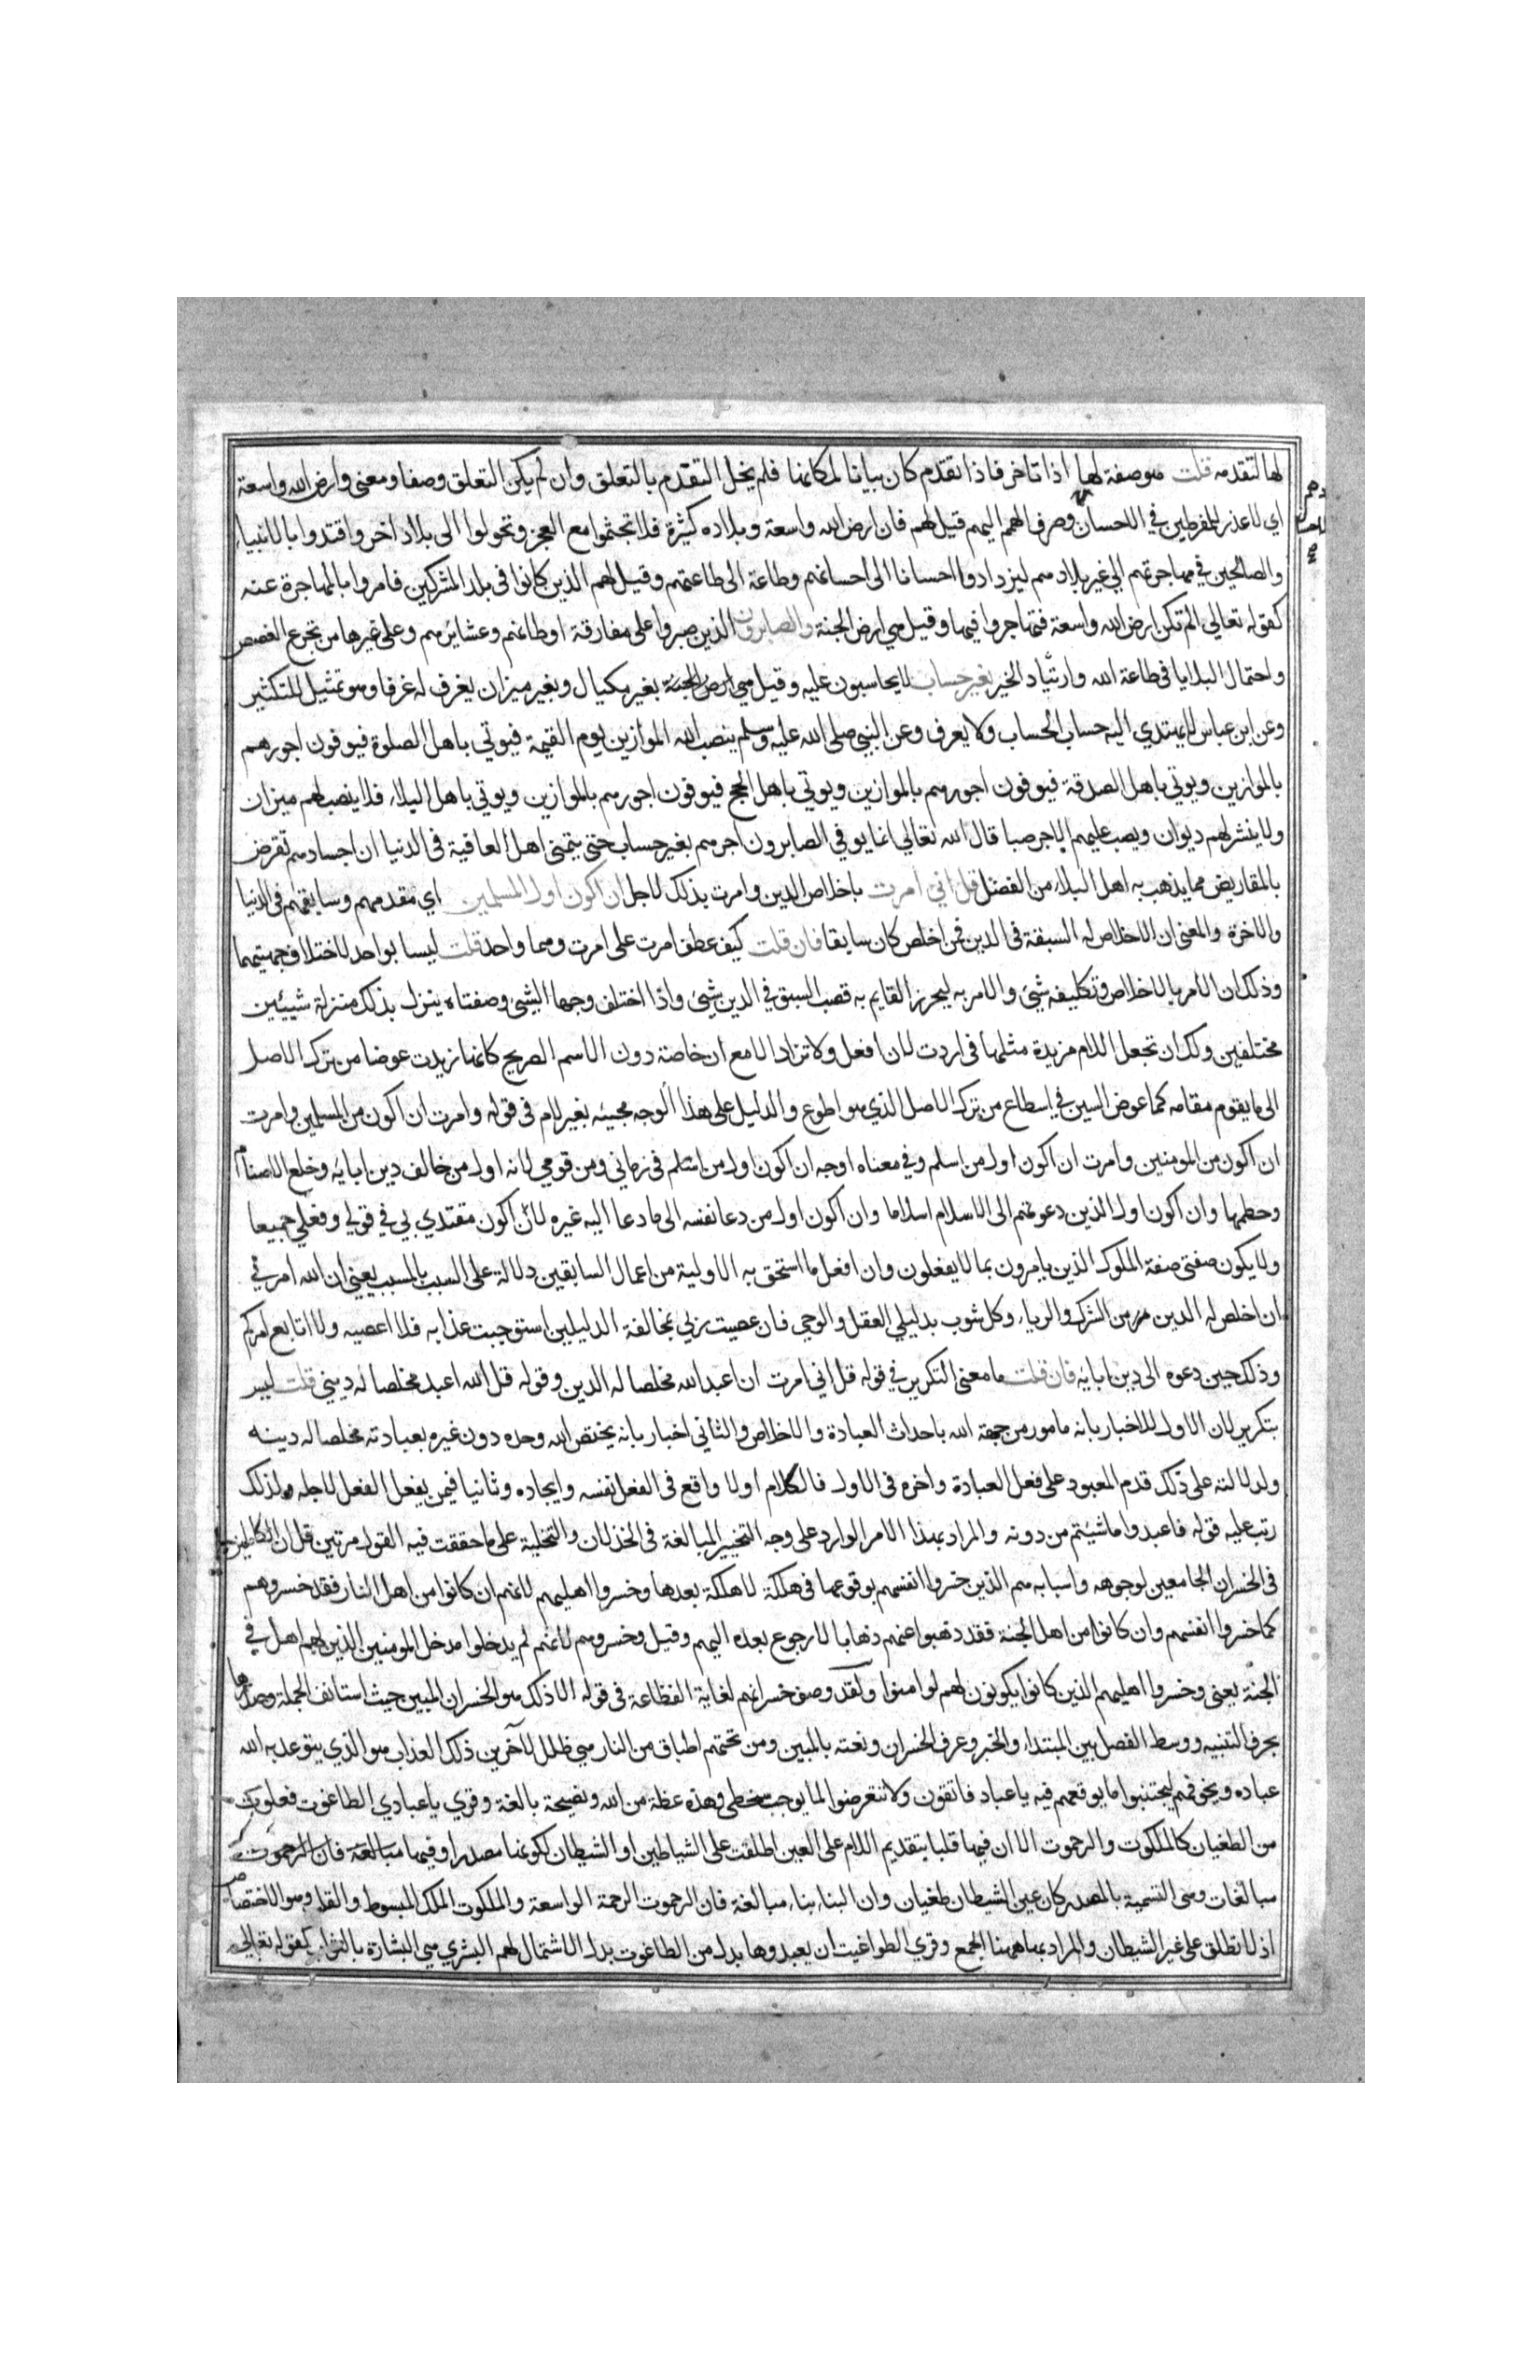 لها لتقدمه قلت هو صفة لها اذا تاخر فاذا تقدم كان بيانا لمكانها فلم يخل التقدم بالتعلق وان لم يكن التعلق وصفا ومعنى وارض الله واسعة
اي لا عذر للمفرطين في الاحسان وصرف الهمم اليهم قيل لهم فان ارض الله واسعة وبلاده كثيرة فلا تجثموا مع العجز وتحولوا الى بلاد اخر واقتدوا بالانبياء
والصالحين في مهاجرتهم الي غير بلادهم ليزدادوا احسانا الى احسانهم وطاعة الى طاعتهم وقيل هم الذين كانوا في بلد المشركين فامروا بالمهاجرة عنه
كقوله تعالي الم تكن ارض الله واسعة فتهاجروا فيها وقيل هي ارض الجنة والصابرون الذين صبروا على مفارقة اوطانهم وعشائرهم وعلى غيرها من تجرع الغصص
واحتمال البلايا في طاعة الله وازدياد الخير بغير حساب لا يحاسبون عليه وقيل هي ارض الجنة بغير مكيال وبغير ميزان يغرف له غرفا وهو تمثيل للتكثير
وعن ابن عباس لا يهتدي اليه حساب الحساب ولا يعرف وعن النبي صلى الله عليه وسلم ينصب الله الموازين يوم القيمة فيوتي باهل الصلوة فيوفون اجورهم
بالموازين ويوتي باهل الصدقة فيوفون اجورهم بالموازين ويوتي باهل الحج فيوفون اجورهم بالموازين ويوتي باهل البلاء فلا ينصب لهم ميزان
ولا ينشر لهم ديوان ويصب عليهم الاجر صبا قال الله تعالي انما يوفي الصابرون اجرهم بغير حساب حتى يتمنى اهل العافية فى الدنيا ان اجسادهم تقرض
بالمقاريض مما يذهب به اهل البلاء من الفضل قل اني امرت باخلاص الدين وامرت بذلك لاجل ان اكون اول المسلمين اي مقدمهم وسابقهم فى الدنيا
والاخرة والمعنى ان الاخلاص له السبقة فى الدين فمن اخلص كان سابقا فان قلت كيف عطف امرت على امرت وهما واحد قلت ليسا بواحد لاختلاف جهتيهما
وذلك ان الامر بالاخلاص وتكليفه شئ والامر به ليحرز القايم به قصب السبق في الدين شئ واذا اختلف وجها الشئ وصفتاه ينزل بذلك منزلة شيئين
مختلفين ولك ان تجعل اللام مزيدة مثلها فى اردت لان افعل ولا تزاد الا مع ان خاصة دون الاسم الصريح كانها زيدت عوضا من ترك الاصل
الى ما يقوم مقامه كما عوض السين في اسطاع من ترك الاصل الذي هو اطوع والدليل على هذا الوجه مجيئه بغير لام فى قوله وامرت ان اكون من المسلمين وامرت
ان اكون من المومنين وامرت ان اكون اول من اسلم وفي معناه اوجه ان اكون اول من اسلم فى زماني ومن قومي لانه اول من خالف دين ابايه وخلع الاصنام
وحطمها وان اكون اول الذين دعوتهم الى الاسلام اسلاما وان اكون اول من دعا نفسه الى ما دعا اليه غيره لان اكون مقتدي بي في قولي وفعلي جميعا
ولا يكون صفتى صفة الملوك الذين يامرون بما لا يفعلون وان افعل ما استحق به الاولية من اعمال السابقين دلالة على السبب بالمسبب يعني ان الله امرني
ان اخلص له الدين من الشرك والرياء وكل شوب بدليلي العقل والوحي فان عصيت ربي بمخالفة الدليلين استوجبت عذابه فلا اعصيه ولا اتابع امركم
وذلك حين دعوه الى دين ابايه فان قلت ما معنى التكرير في قوله قل اني امرت ان اعبد الله مخلصا له الدين وقوله قل الله اعبد مخلصا له ديني قلت ليس
بتكرير لان الاول للاخبار بانه مامور من جهة الله باحداث العبادة والاخلاص والثانى اخبار بانه يختص الله وحده دون غيره بعبادته مخلصا له دينه
ولدلالته على ذلك قدم المعبود على فعل العبادة واخره فى الاول فالكلام اولا واقع فى الفعل نفسه وايجاده وثانيا فيمن يفعل الفعل لاجله ولذلك
رتب عليه قوله فاعبدوا ما شئتم من دونه والمراد بهذا الامر الوارد على وجه التخيير المبالغة فى الخذلان والتخلية على ما حققت فيه القول مرتين قل ان الكاملين
فى الخسران الجامعين لوجوهه واسبابه هم الذين خسروا انفسهم بوقوعها في هلكة لا هلكة بعدها وخسروا اهليهم لانهم ان كانوا من اهل النار فقد خسروهم
كما خسروا انفسهم وان كانوا من اهل الجنة فقد ذهبوا عنهم ذهابا لا رجوع بعده اليهم وقيل وخسروهم لانهم لم يدخلوا مدخل المومنين الذين لهم اهل في
الجنة يعنى وخسروا اهليهم الذين كانوا يكونون لهم لو امنوا ولقد وصف خسرانهم لغاية الفظاعة فى قوله الا ذلك هو الخسران المبين حيث استانف الجملة وصدرها
بحرف التنبيه ووسط الفصل بين المبتداء والخبر وعرف الخسران ونعته بالمبين ومن تحتهم اطباق من النار هي ظلل لآخرين ذلك العذاب هو الذي يتوعد به الله
عباده ويخوفهم ليجتنبوا ما يوقعهم فيه يا عباد فاتقون ولا تتعرضوا لما يوجب سخطي وهذه عظة من الله ونصيحة بالغة وقري يا عبادي الطاغوت فعلوت
من الطغيان كالملكوت والرحموت الا ان فيها قلبا بتقديم اللام على العين اطلقت على الشياطين او الشيطان لكونها مصدرا وفيها مبالغة فان الرحموت
مبالغات وهى التسمية بالمصدر كان عين الشيطان طغيان وان البناء بناء مبالغة فان الرحموت الرحمة الواسعة والملكوت الملك المبسوط والقلب وهو الاختصاص
اذ لا تطلق على غير الشيطان والمراد بها ههنا الجمع وقري الطواغيت ان يعبدوها بدل من الطاغوت بدل الاشتمال لهم البشري هي البشارة بالثواب كقوله تعالى